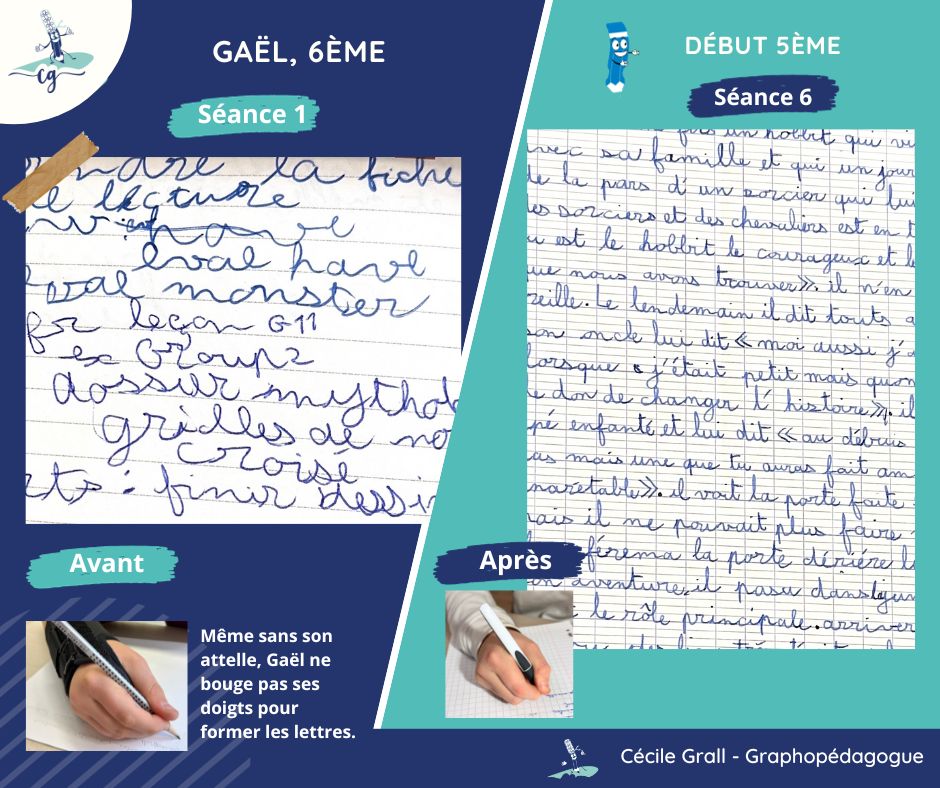 cg
GAËL, 6ÈME
Séance 1
ndre la fiche
e lecture
have
eval have
eval monster
leçon G11
ex Groupe
dossier mytholo
grilles de mo
croisé
rts : finir dessin
Avant
Même sans son
attelle, Gaël ne
bouge pas ses
doigts pour
former les lettres.
DÉBUT 5ÈME
Séance 6
fois un hobbit qui vi
avec sa famille et qui un jour
de la pars d'un sorcier qui lui
des sorciers et des chevaliers est en t
u est le hobbit le courageux et le
que nous avons trouver». il n'en
reille. Le lendemain il dit touts a
son oncle lui dit « moi aussi j'a
lorsque j'était petit mais quon
le don de changer l'histoire». il
pé enfanté et lui dit « au débuis
as mais une que tu auras fait am
il voit la porte faite
mais il ne pouvait plus faire
férema la porte dériére l
on aventure. il pasu dans
le rôle principale. arriver
Après
Cécile Grall - Graphopédagogue